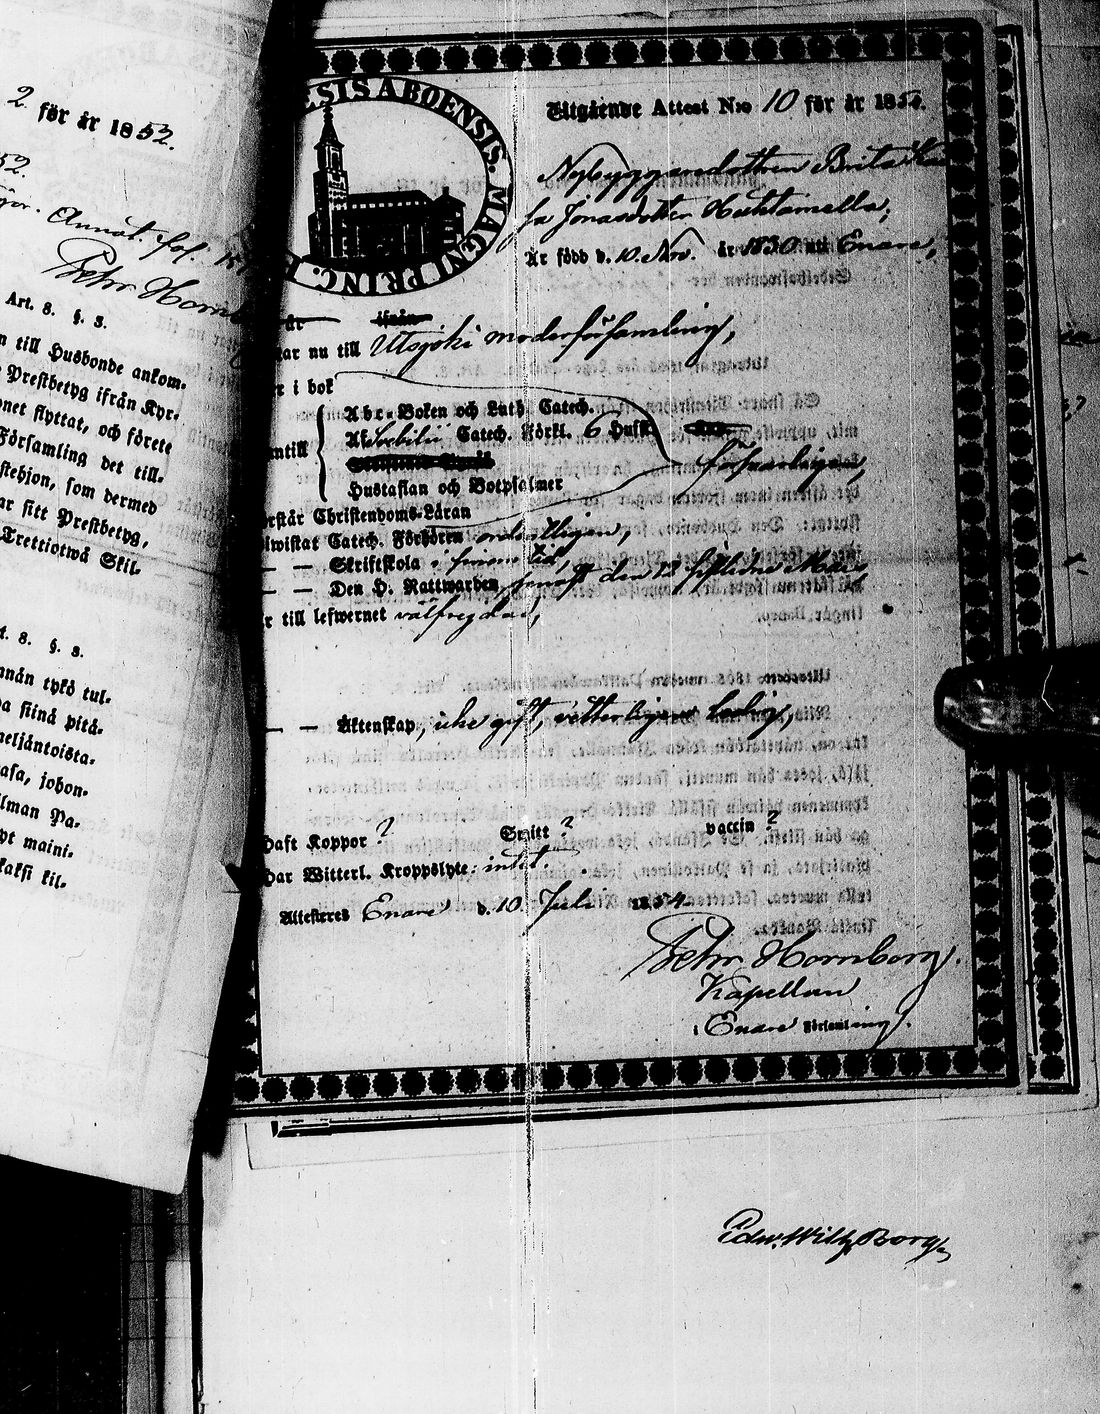 2. för år 1852.
52.
Annot. fol. 15
Petr Hornb
Art. 8. §. 3.
n till Husbonde ankom-
Prestbetyg ifrån Kyr-
onet flyttat, och förete
Församling det till-
stehjon, som dermed
ar sitt Prestbetyg,
Trettiotwå Skil-
t. 8. §. 3.
nnän tykö tul-
a siinä pitä-
neljäntoista-
asa, johon-
lman Pa-
pt maini-
kaksi kil-
ESIS ABOENSIS. MAGNI PRINC.
Utgående Attest N:ro 10 för år 1854.
Nybyggaredottren Brita Kai
sa Jonasdotter Huhtamella;
Är född d. 10. Nov. år 1830 uti Enare,
är ifrån
tar nu till Utsjoki moderförsamling,
r i bok
Abc-Boken och Luth. Catech.
Af Svebilii Catech. Förkl. 6 Hufst.
ntill
försvarligen,
Hustaflan och Botpsalmer
rstår Christendoms-Läran
lwistat Catech. Förhören ordentligen,
— — Skriftskola i sinom tid,
— — Den H. Nattwarden, senast den 13 sistlidne Mars
r till lefwernet välfrejdad,
— — Äktenskap, icke gift, vetterligen ledig,
Haft Koppor ? Smitt ? vaccin ?
Har Witterl. Kroppslyte: intet.
Attesteres Enare d. 10. Juli 1854.
Petr Hornborg.
Kapellan
i Enare Församling.
Edw. Wilh. Borg